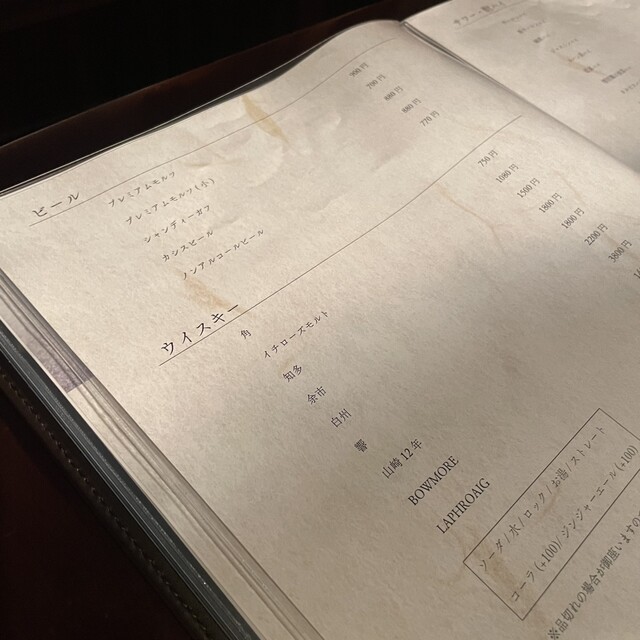 ビール
プレミアムモルツ 900円
プレミアムモルツ(小) 700円
シャンディーガフ 880円
カシスビール 880円
ノンアルコールビール 770円
ウイスキー
角 750円
イチローズモルト 1080円
知多 1500円
余市 1800円
白州 1800円
響 2200円
山崎12年 3000円
BOWMORE
LAPHROAIG
ソーダ/水/ロック/お湯/ストレート
コーラ(+100)/ジンジャーエール(+100)
※品切れの場合が御座いますの